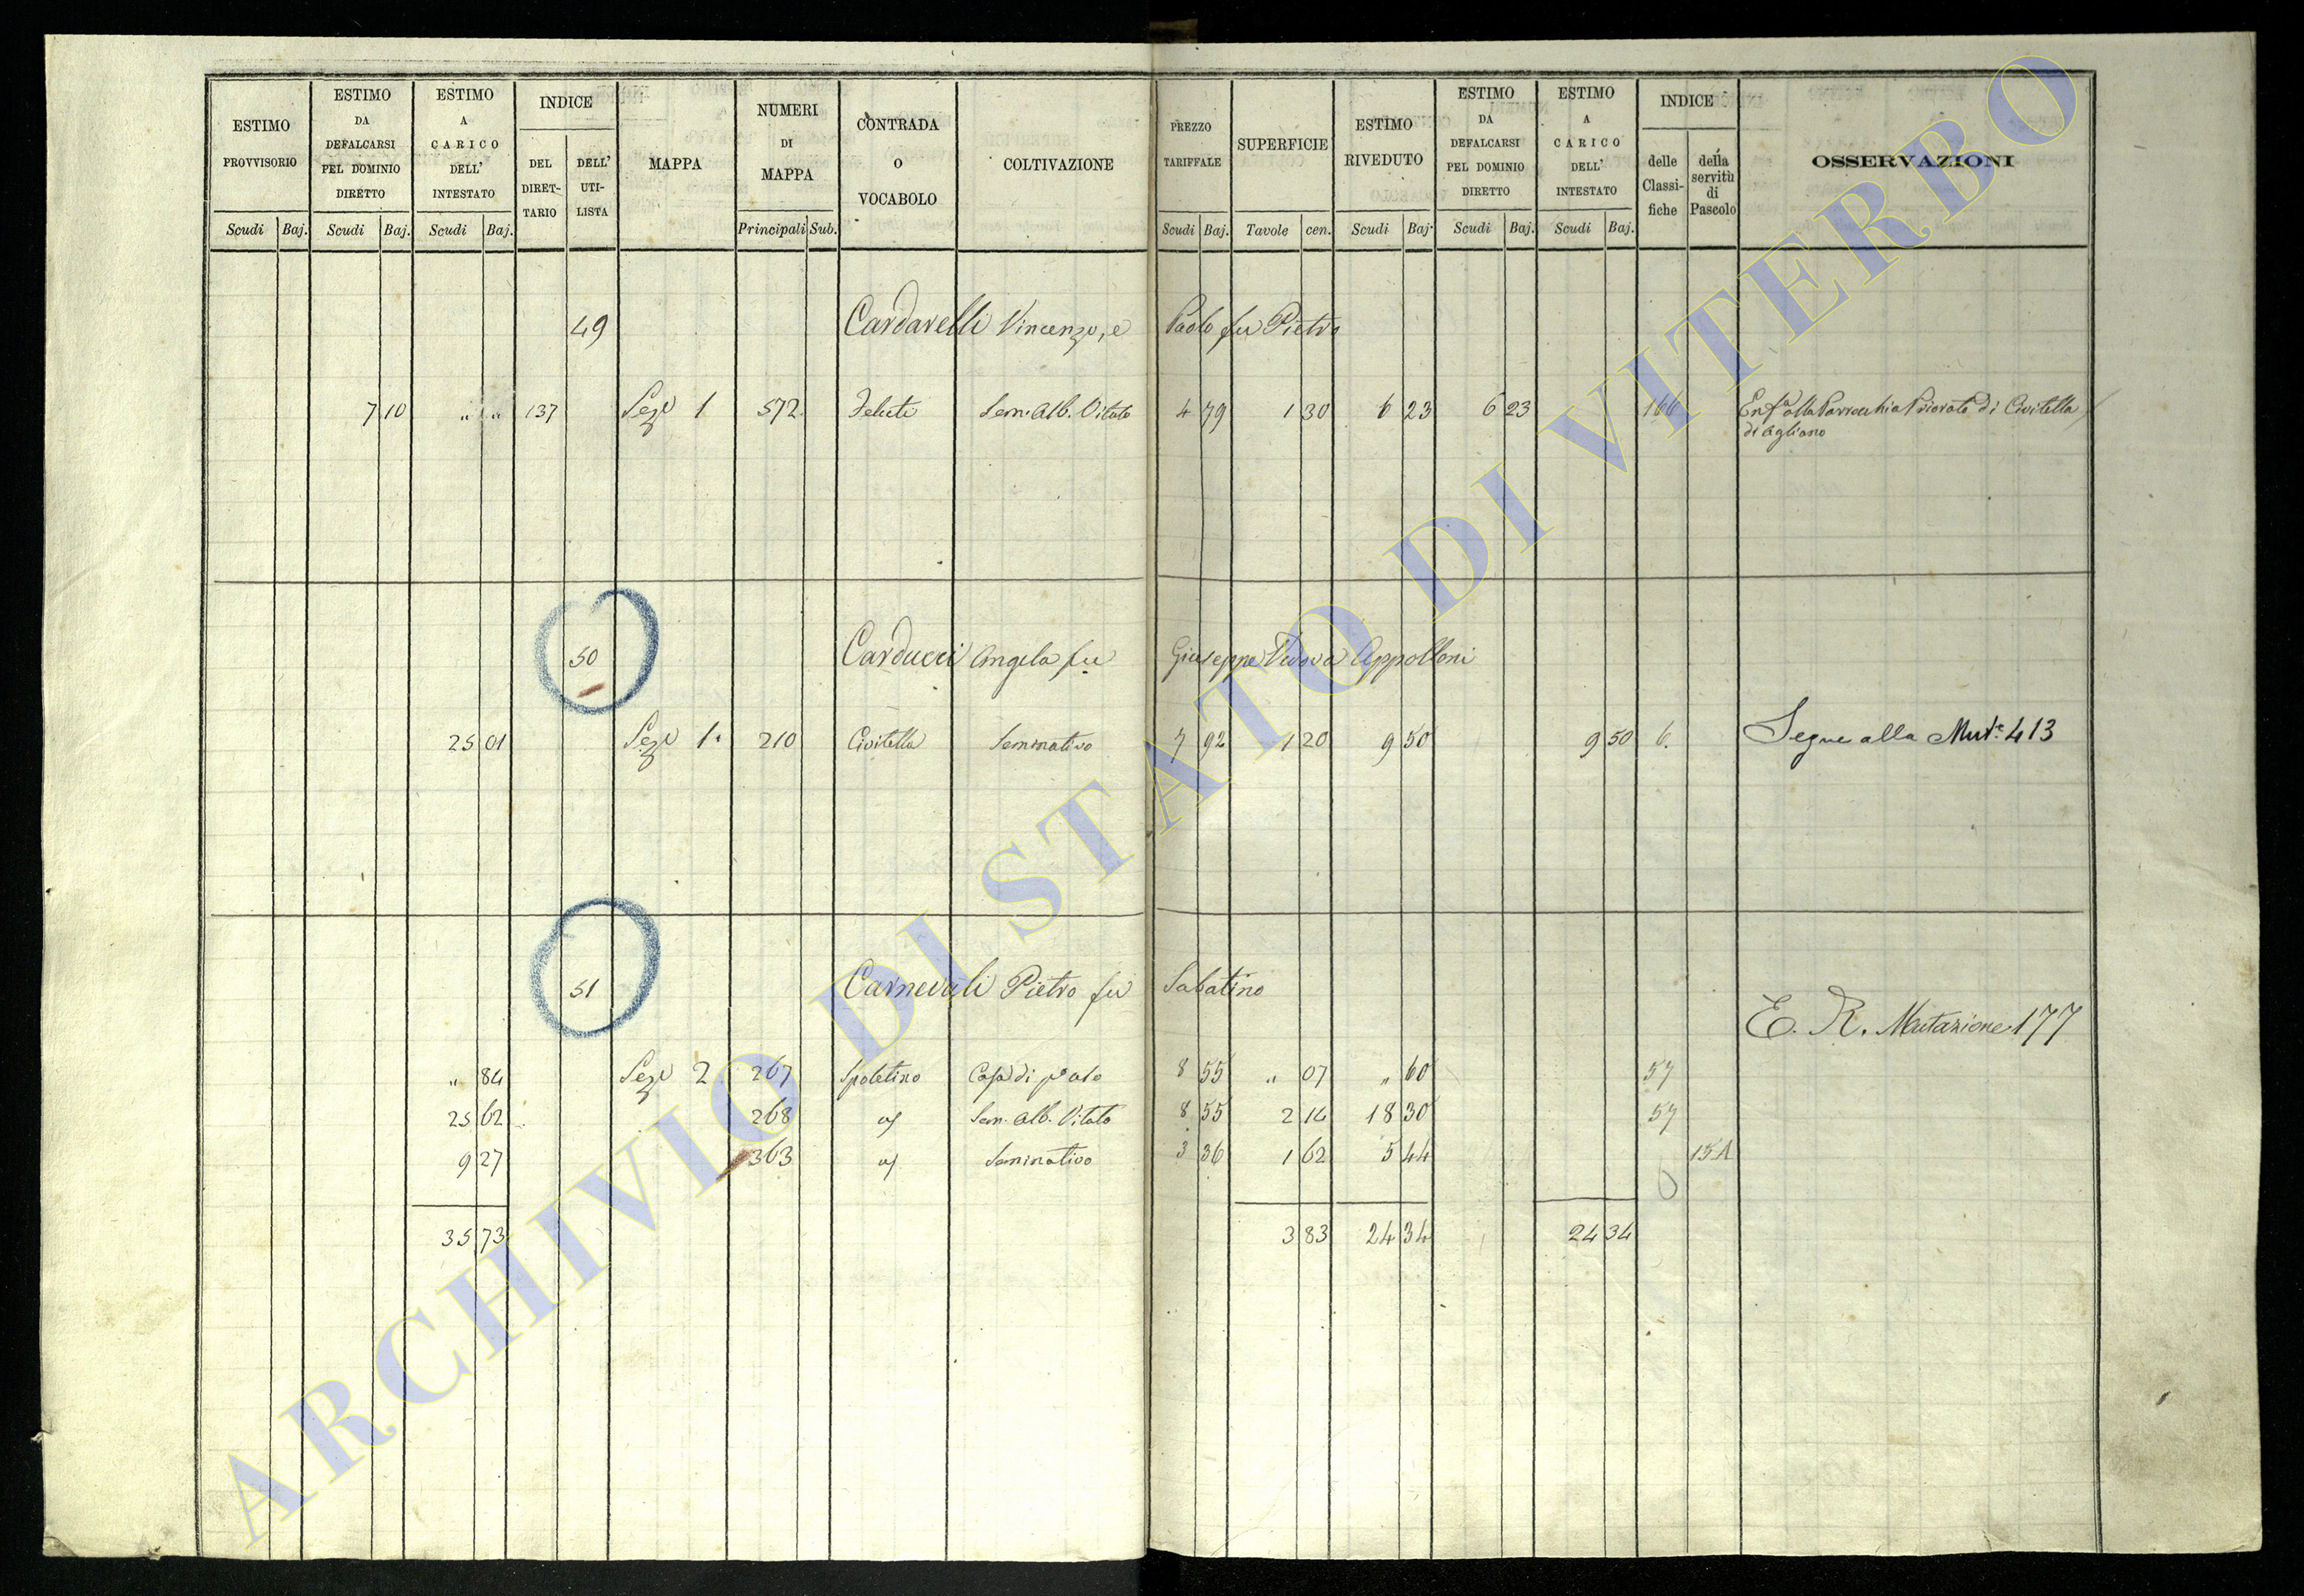 ESTIMO PROVVISORIO
ESTIMO DA DEFALCARSI PEL DOMINIO DIRETTO
ESTIMO A CARICO DELL' INTESTATO
INDICE
DEL DIRET-TARIO
DELL' UTI-LISTA
MAPPA
NUMERI DI MAPPA
CONTRADA O VOCABOLO
COLTIVAZIONE
PREZZO TARIFFALE
SUPERFICIE
ESTIMO RIVEDUTO
ESTIMO DA DEFALCARSI PEL DOMINIO DIRETTO
ESTIMO A CARICO DELL' INTESTATO
INDICE
delle Classi-fiche
della servitù di Pascolo
OSSERVAZIONI
Scudi Baj. Scudi Baj. Scudi Baj. Principali Sub. Scudi Baj. Tavole cen. Scudi Baj. Scudi Baj. Scudi Baj.
49 Cardarelli Vincenzo, e Paolo fu Pietro
7 10 " " 137 Sez 1 572 Sem. Alb. Vitato 4 79 1 30 6 23 6 23 166 Enfa alla Parrocchia Priorato di Civitella
di Agliano
50 Carducci Angela fu Giuseppe Vedova Appolloni
25 01 Sez 1. 210 Civitella Seminativo 7 92 1 20 9 50 9 50 6. Segue alla Mute. 413
51 Carnevali Pietro fu Sabatino
E. R. Mutazione 177
" 84 Sez 2 267 Spoletino Casa di 8 55 " 07 " 60 57
25 62 268 Sem. Alb. Vitato 8 55 2 14 18 30 57
9 27 363 Seminativo 3 36 1 62 5 44 15A
35 73 3 83 24 34 24 34
ARCHIVIO DI STATO DI VITERBO